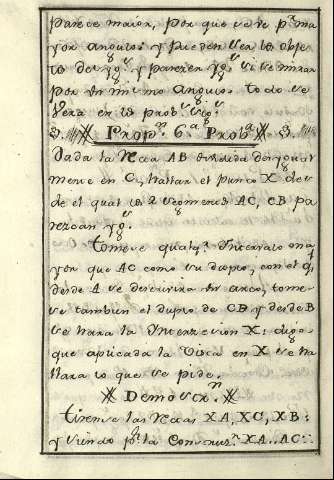 parece maior, por que se ve p.r ma
yor angulo: y pueden ser los obje
tos desyg.s y parecer yg.s si se miran
por un mismo angulo: todo se
vera en los prob.s sig.s
Prop.n 6.a Prob.a
Dada la Recta AB dividida desygual
mente en C, hallar el punto X des
de el qual los 2 segmentos AC, CB pa
rezcan yg.s
Tomese qualq.r Intervalo ma
yor que AC como su duplo, con el q.l
desde A se descrivira un arco, tome
se tambien el duplo de CB y desde B
se hara la Interseccion X: digo
que aplicada la Vista en X se ha
llara lo que se pide.
Demostr.n
Tirense las Rectas XA, XC, XB:
y siendo p.r la Construc.n XA..AC::